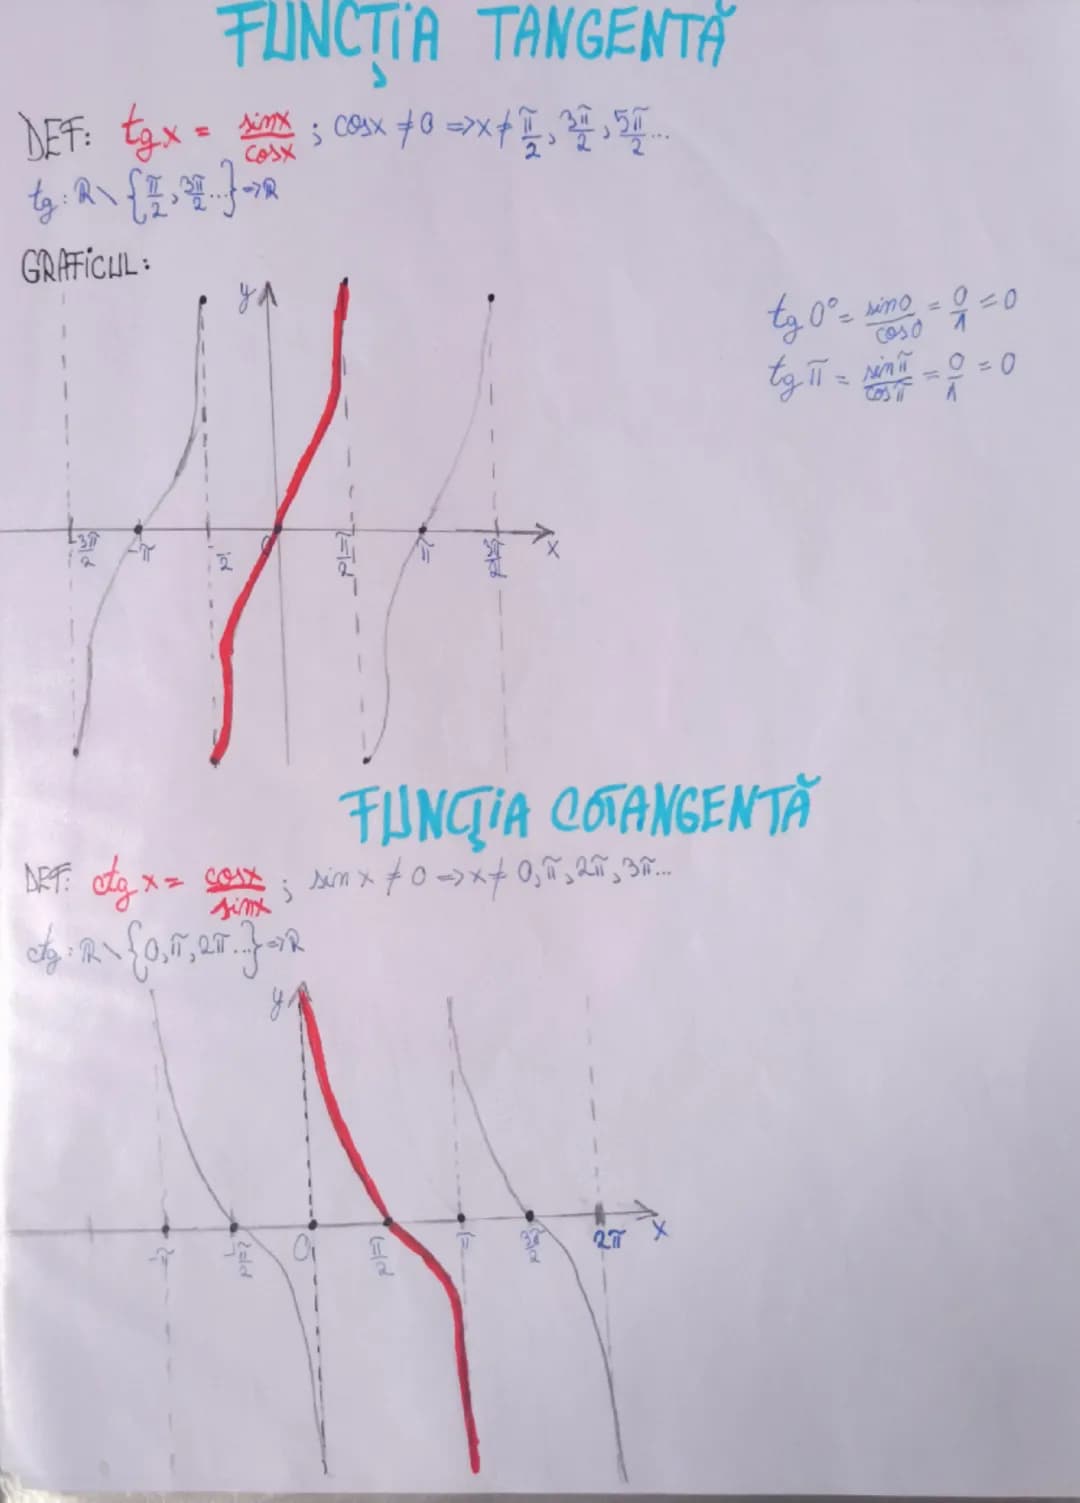 FUNCȚIA TANGENTĂ
DEF: tg x = sinx/cosx ; cosx ≠ 0 => x ≠ π/2, 3π/2, 5π/2...
tg: R \ {π/2, 3π/2...} -> R
GRAFICUL:
y
tg 0° = sin0/cos0 = 0/1 = 0
tg π = sinπ/cosπ = 0/1 = 0
-3π/2 -π -π/2 0 π/2 π 3π/2 x
FUNCȚIA COTANGENTĂ
DEF: ctg x = cosx/sinx ; sin x ≠ 0 => x ≠ 0, π, 2π, 3π...
ctg: R \ {0, π, 2π...} -> R
y
-π -π/2 0 π/2 π 3π/2 2π x